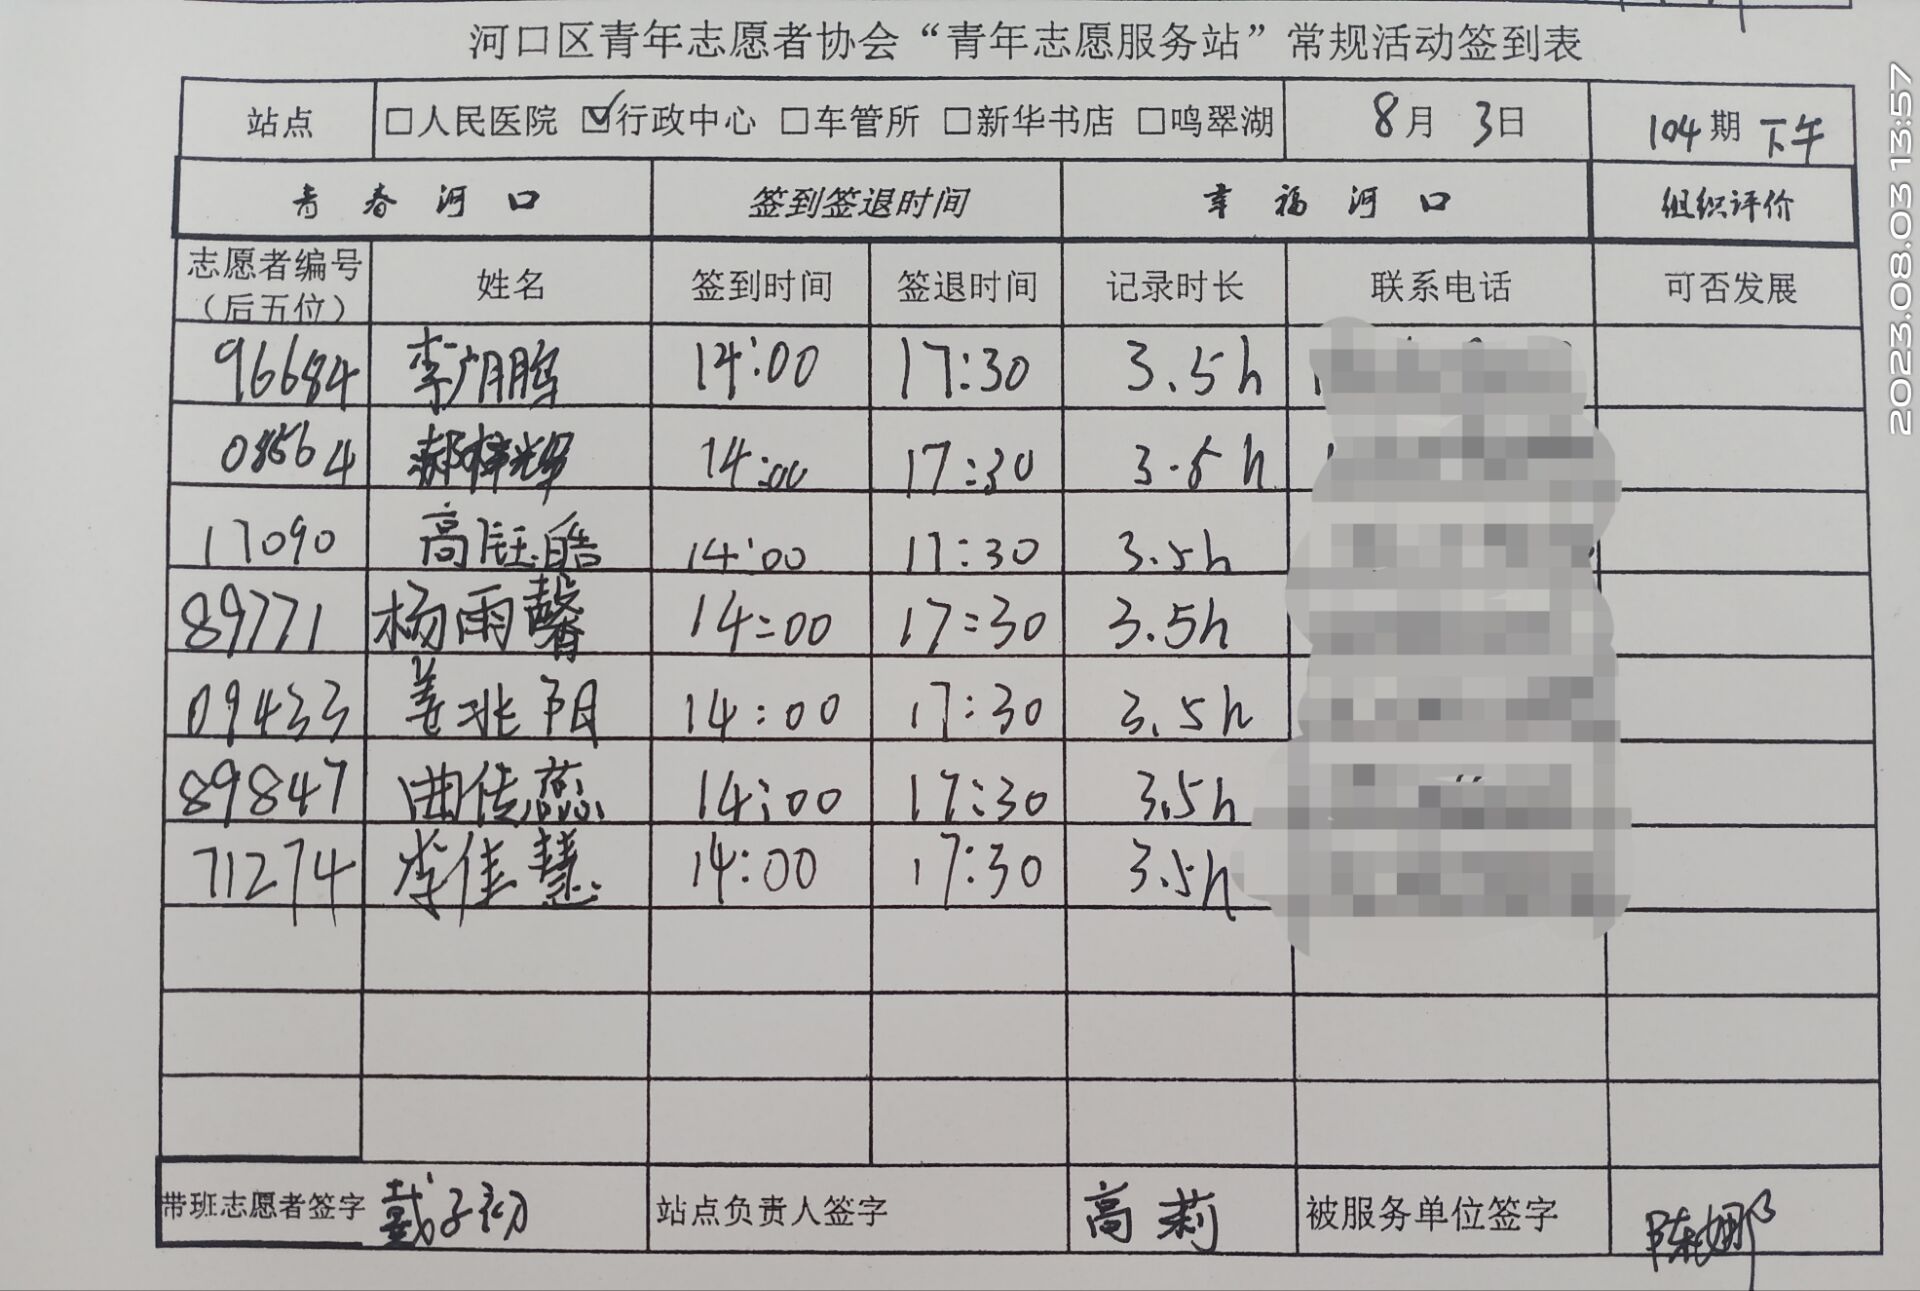 河口区青年志愿者协会“青年志愿服务站”常规活动签到表
站点 □人民医院 ☑行政中心 □车管所 □新华书店 □鸣翠湖 8月 3日 104期 下午
青春河口 签到签退时间 幸福河口 组织评价
志愿者编号（后五位） 姓名 签到时间 签退时间 记录时长 联系电话 可否发展
96684 李 鹏 14:00 17:30 3.5h
08564 郝梓辉 14:00 17:30 3.5h
17090 高钰皓 14:00 17:30 3.5h
89771 杨雨馨 14:00 17:30 3.5h
09433 姜兆阳 14:00 17:30 3.5h
89847 曲传蕊 14:00 17:30 3.5h
71274 李佳慧 14:00 17:30 3.5h
带班志愿者签字 戴子初 站点负责人签字 高莉 被服务单位签字 陈娜
2023.08.03 13:57